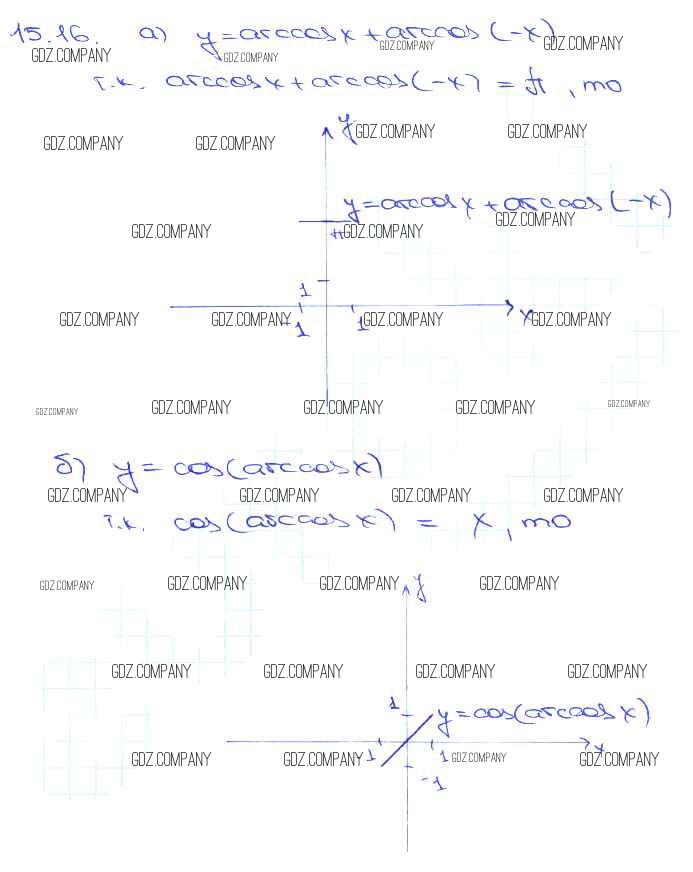 15.16. а) y = arccos x + arccos (-x)
GDZ.COMPANY GDZ.COMPANY GDZ.COMPANY GDZ.COMPANY
т.к. arccos x + arccos (-x) = π, то
GDZ.COMPANY GDZ.COMPANY y GDZ.COMPANY GDZ.COMPANY
y = arccos x + arccos (-x)
GDZ.COMPANY π GDZ.COMPANY GDZ.COMPANY
1
GDZ.COMPANY GDZ.COMPANY GDZ.COMPANY x GDZ.COMPANY
-1 1
GDZ.COMPANY GDZ.COMPANY GDZ.COMPANY GDZ.COMPANY GDZ.COMPANY
б) y = cos(arccos x)
GDZ.COMPANY GDZ.COMPANY GDZ.COMPANY GDZ.COMPANY
т.к. cos(arccos x) = x, то
GDZ.COMPANY GDZ.COMPANY GDZ.COMPANY y GDZ.COMPANY
GDZ.COMPANY GDZ.COMPANY GDZ.COMPANY GDZ.COMPANY
1 y = cos(arccos x)
x
GDZ.COMPANY GDZ.COMPANY 1 1 GDZ.COMPANY GDZ.COMPANY
-1